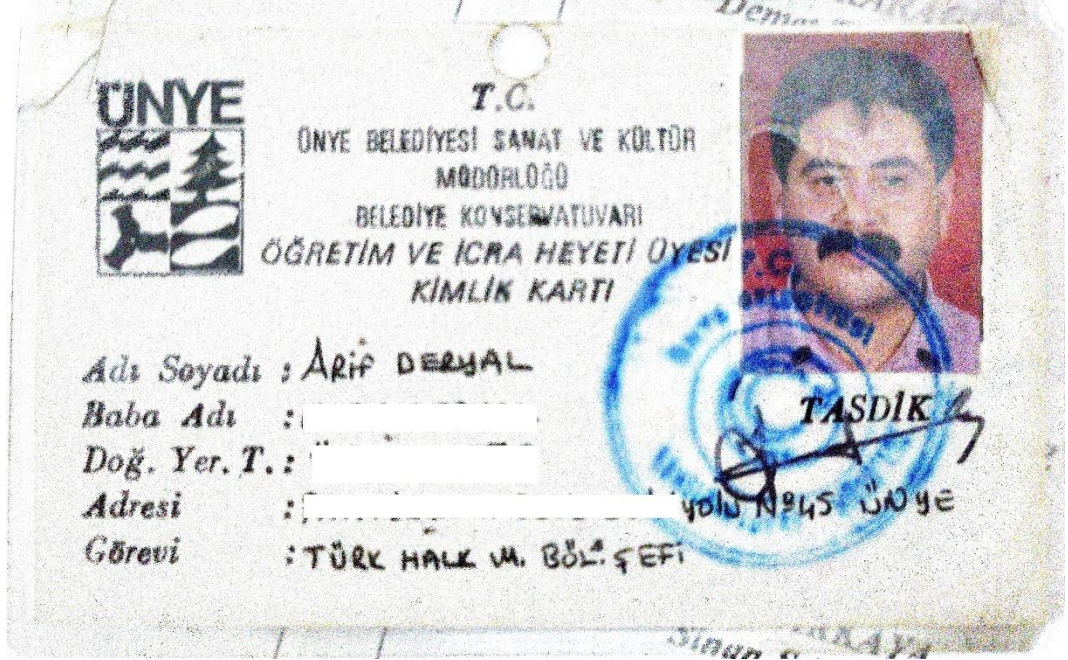 ÜNYE
T.C.
ÜNYE BELEDİYESİ SANAT VE KÜLTÜR
MÜDÜRLÜĞÜ
BELEDİYE KONSERVATUVARI
ÖĞRETİM VE İCRA HEYETİ ÜYESİ
KİMLİK KARTI
Adı Soyadı : ARİF DERYAL
Baba Adı :
Doğ. Yer. T. :
Adresi : yolu Nº45 ÜNYE
Görevi : TÜRK HALK M. BÖL. ŞEFİ
TASDİK
T.C.
ÜNYE BELEDİYESİ
Sinan